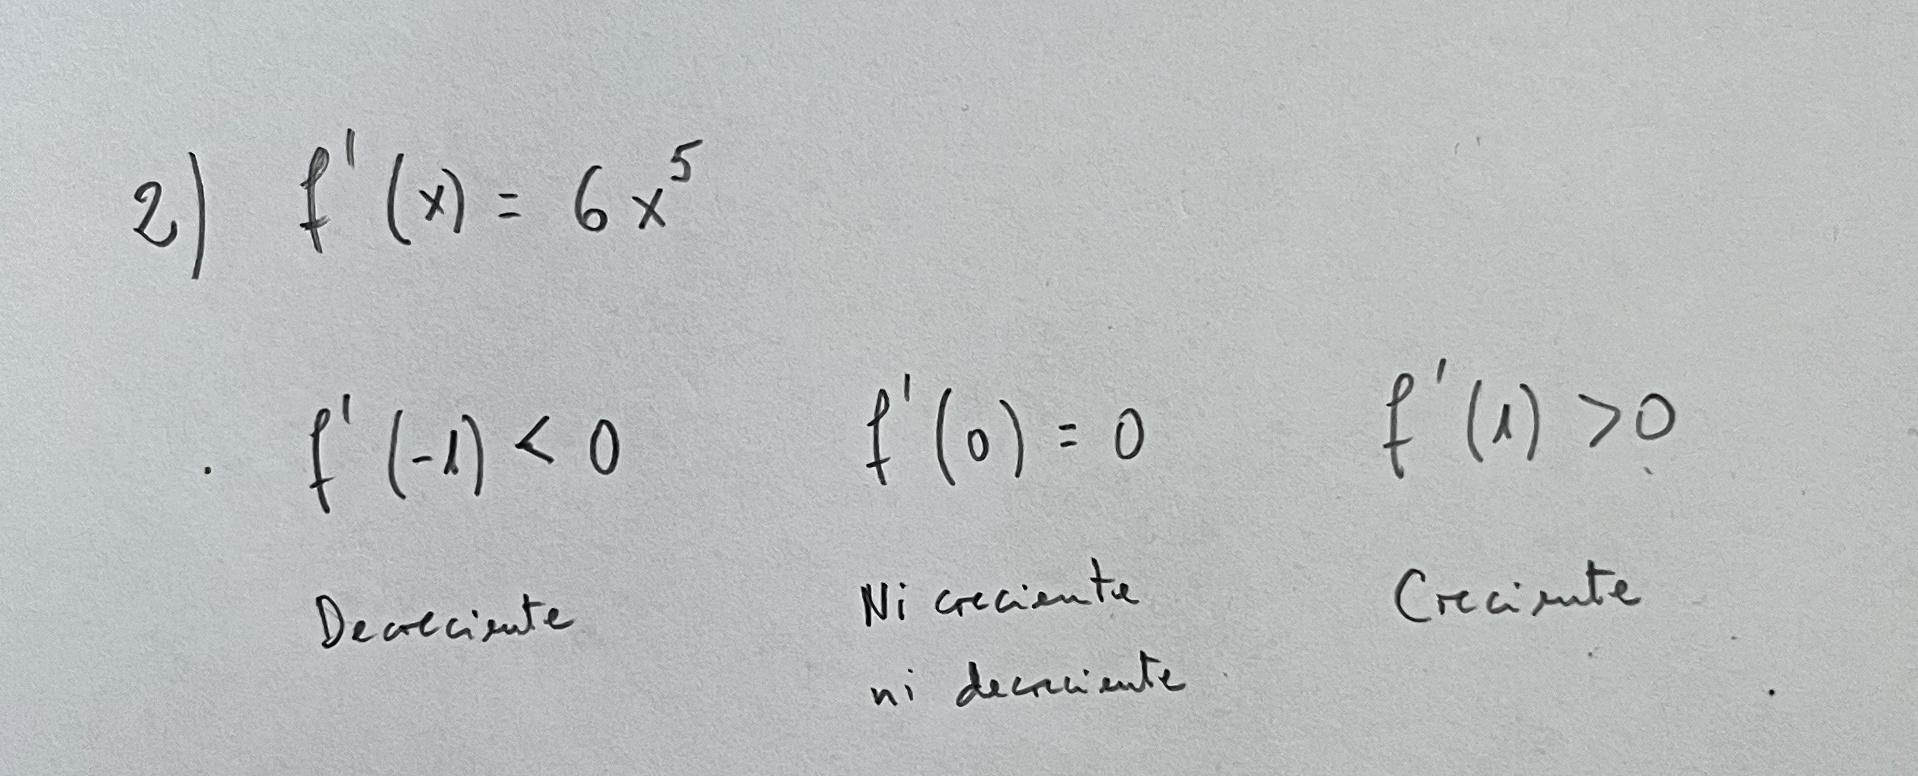 2) f'(x) = 6x⁵
f'(-1) < 0 f'(0) = 0 f'(1) > 0
Decreciente Ni creciente Creciente
ni decreciente